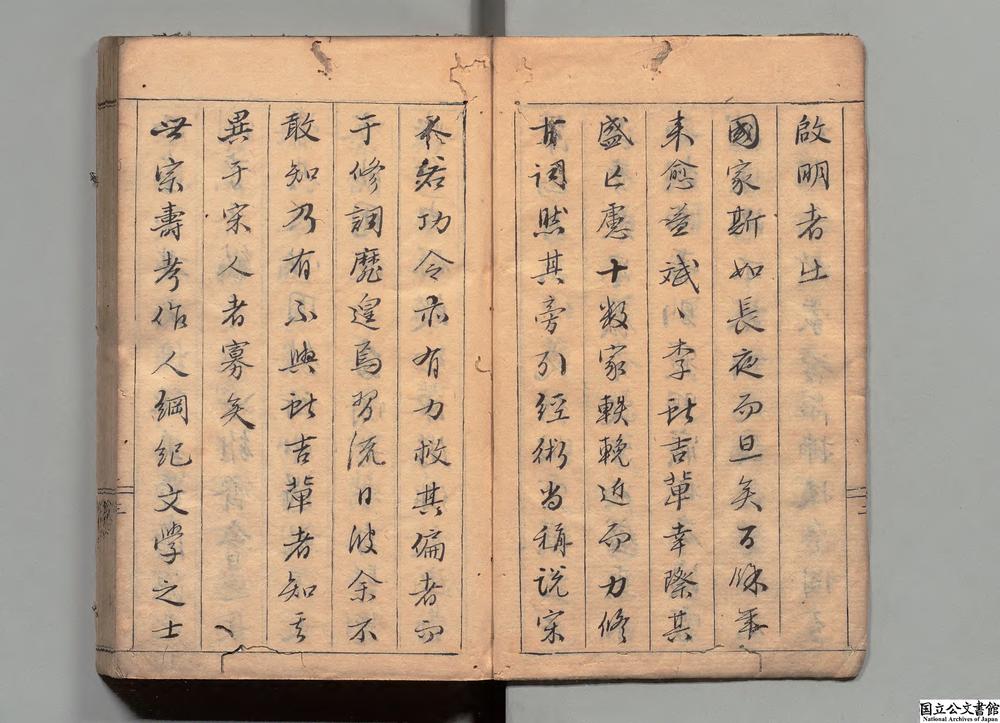 啟明者也
國家斯如長夜而旦矣百餘年
来愈益斌〻李獻吉輩幸際其
盛已慮十数家軼輓近而力修
古詞然其旁引經術尚稱說宋
人若功令亦有力救其偏者而
于修詞靡遑焉習流日波余不
敢知乃有不與獻吉輩者知其
異于宋人者寡矣
世宗壽考作人綱紀文學之士
国立公文書館
National Archives of Japan